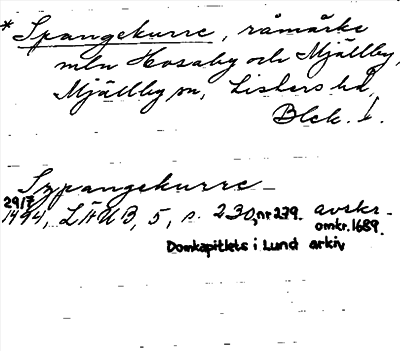 * Spangekurre, råmärke
mln Hosaby och Mjällby,
Mjällby sn, Listers hd,
Blek. †.
Szpangekurre
29/7
1494, LÄUB, 5, s. 230, nr 279. avskr.
omkr. 1689.
Domkapitlets i Lund arkiv